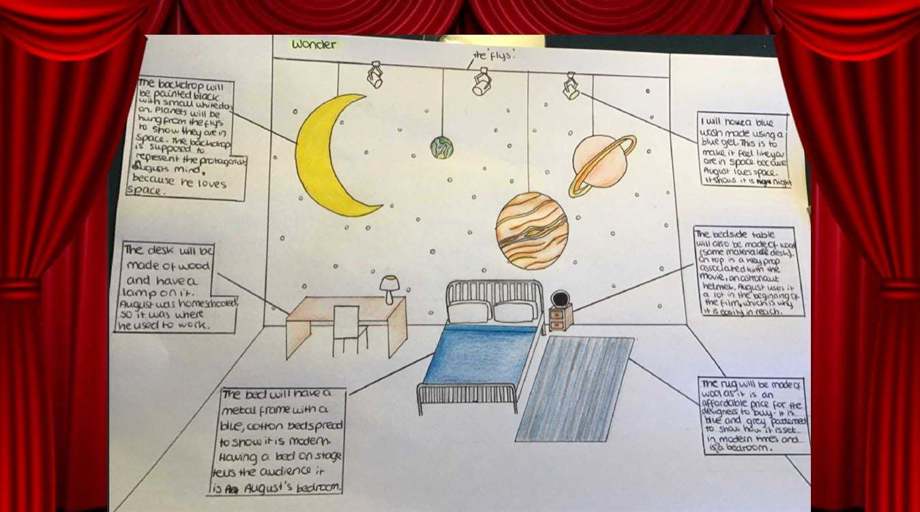 Wonder
the 'flys'.
The backdrop will
be painted black
with small white dots
on. Planets will be
hung from the flys
to show they are in
space. The backdrop
is supposed to
represent the protagonist
Augusts mind,
because he loves
space.
I will have a blue
wash made using a
blue gel. This is to
make it feel like you
are in space because
August loves space.
It shows it is night
The desk will be
made of wood
and have a
lamp on it.
August was homeschooled
so it was where
he used to work.
The bedside table
will also be made of wood
(same material as desk).
On top is a key prop
associated with the
movie, an astronaut
helmet. August uses it
a lot in the beginning of
the film, which is why
it is easily in reach.
The bed will have a
metal frame with a
blue, cotton bedspread
to show it is modern.
Having a bed on stage
tells the audience it
is August's bedroom.
The rug will be made of
wool as it is an
affordable price for the
designers to buy. It is
blue and grey patterned
to show how it is set
in modern times and
is a bedroom.